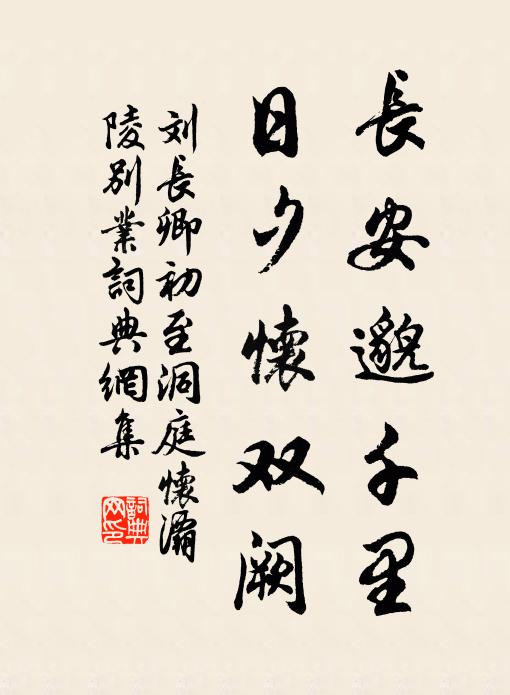 長安邈千里
日夕懷双阙
刘長卿初至洞庭懷灞
陵别業詞典網集
詞典
网印